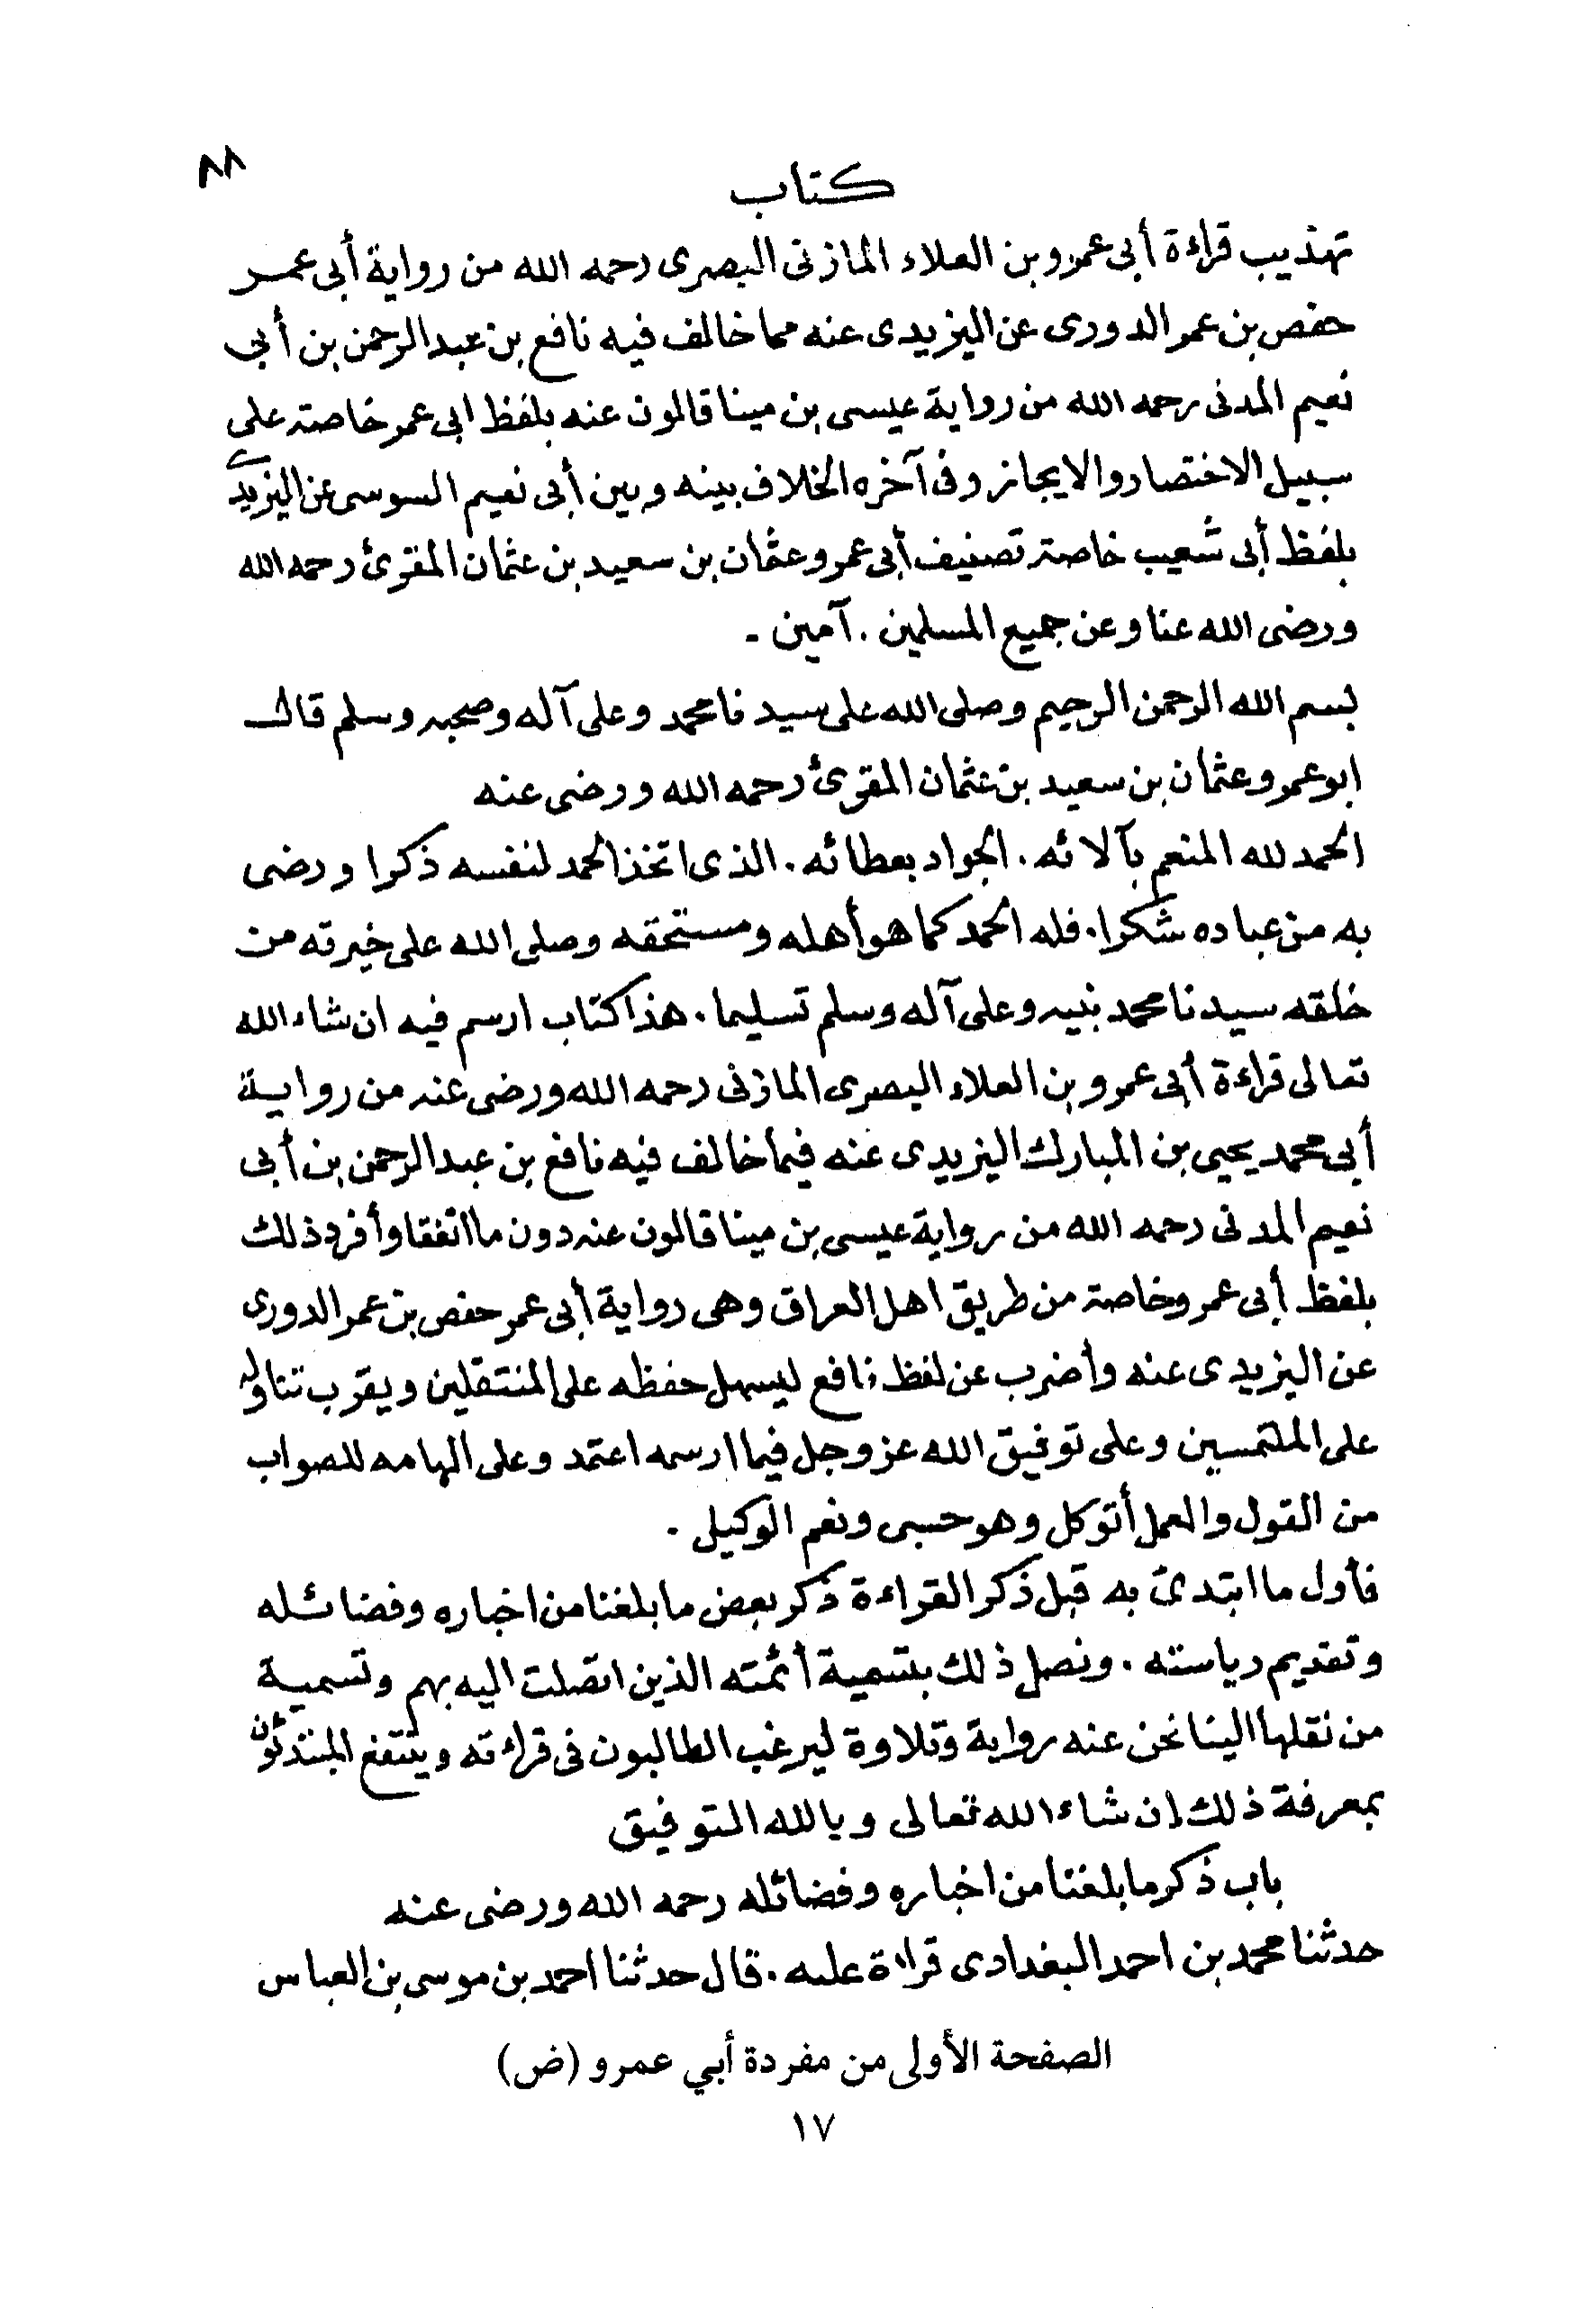 ٨٨
كتاب
تهذيب قراءة أبي عمرو بن العلاء المازنى البصرى رحمه الله من رواية أبى عمـر
حفص بن عمر الدورى عن اليزيدى عنه مما خالف فيه نافع بن عبد الرحمن بن أبي
نعيم المدنى رحمه الله من رواية عيسى بن مينا قالون عنه بلفظ ابى عمر خاصة على
سبيل الاختصار والايجاز وفى آخره الخلاف بينه وبين أبى نعيم السوسى عن اليزيدى
بلفظ أبى شعيب خاصة تصنيف أبى عمرو عثمان بن سعيد بن عثمان المقرئ رحمه الله
ورضى الله عنا وعن جميع المسلمين . آمين -
بسم الله الرحمن الرحيم وصلى الله على سيدنا محمد وعلى آله وصحبه وسلم قال
ابو عمرو عثمان بن سعيد بن عثمان المقرئ رحمه الله ورضى عنه
الحمد لله المنعم بآلائه . الجواد بعطائه . الذى اتخذ الحمد لنفسه ذكرا ورضى
به من عباده شكرا . فله الحمد كما هو أهله ومستحقه وصلى الله على خيرته من
خلقه سيدنا محمد نبيه وعلى آله وسلم تسليما . هذا كتاب ارسم فيه ان شاء الله
تعالى قراءة أبى عمرو بن العلاء البصرى المازنى رحمه الله ورضى عنه من روايـة
أبي محمد يحيى بن المبارك اليزيدى عنه فيما خالف فيه نافع بن عبد الرحمن بن أبى
نعيم المدنى رحمه الله من رواية عيسى بن مينا قالون عنه دون ما اتفقا وأفرد ذلك
بلفظ أبى عمرو خاصة من طريق اهل العراق وهى رواية أبى عمر حفص بن عمر الدورى
عن اليزيدى عنه وأضرب عن لفظ نافع ليسهل حفظه على المنتقلين ويقرب تناوله
على الملتمسين وعلى توفيق الله عز وجل فيما ارسمه اعتمد وعلى الهامه للصواب
من القول والعمل أتوكل وهو حسبى ونعم الوكيل .
فأول ما ابتدئ به قبل ذكر القراءة ذكر بعض ما بلغنا من اخباره وفضائله
وتقديم رياسته . ونصل ذلك بتسمية أئمته الذين اتصلت اليه بهم وتسميـة
من نقلها الينا نحن عنه رواية وتلاوة ليرغب الطالبون فى قراءته وينتفع المبتدئون
بمعرفة ذلك إن شاء الله تعالى وبالله التوفيق
باب ذكر ما بلغنا من اخباره وفضائله رحمه الله ورضى عنه
حدثنا محمد بن احمد البغدادى قراءة عليه . قال حدثنا احمد بن موسى بن العباس
الصفحة الأولى من مفردة أبي عمرو (ض)
١٧